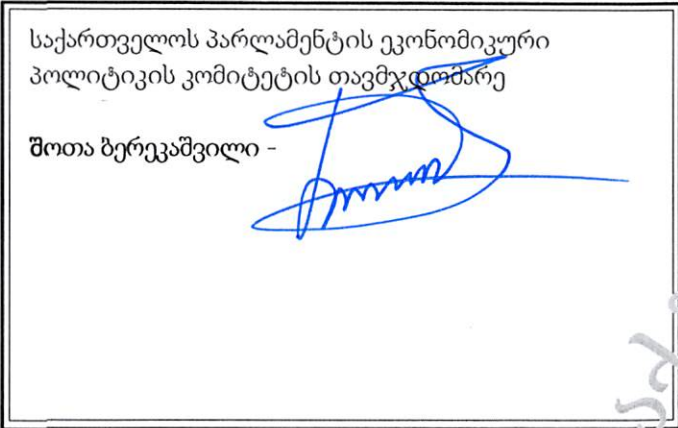 საქართველოს პარლამენტის ეკონომიკური
პოლიტიკის კომიტეტის თავმჯდომარე
შოთა ბერეკაშვილი -